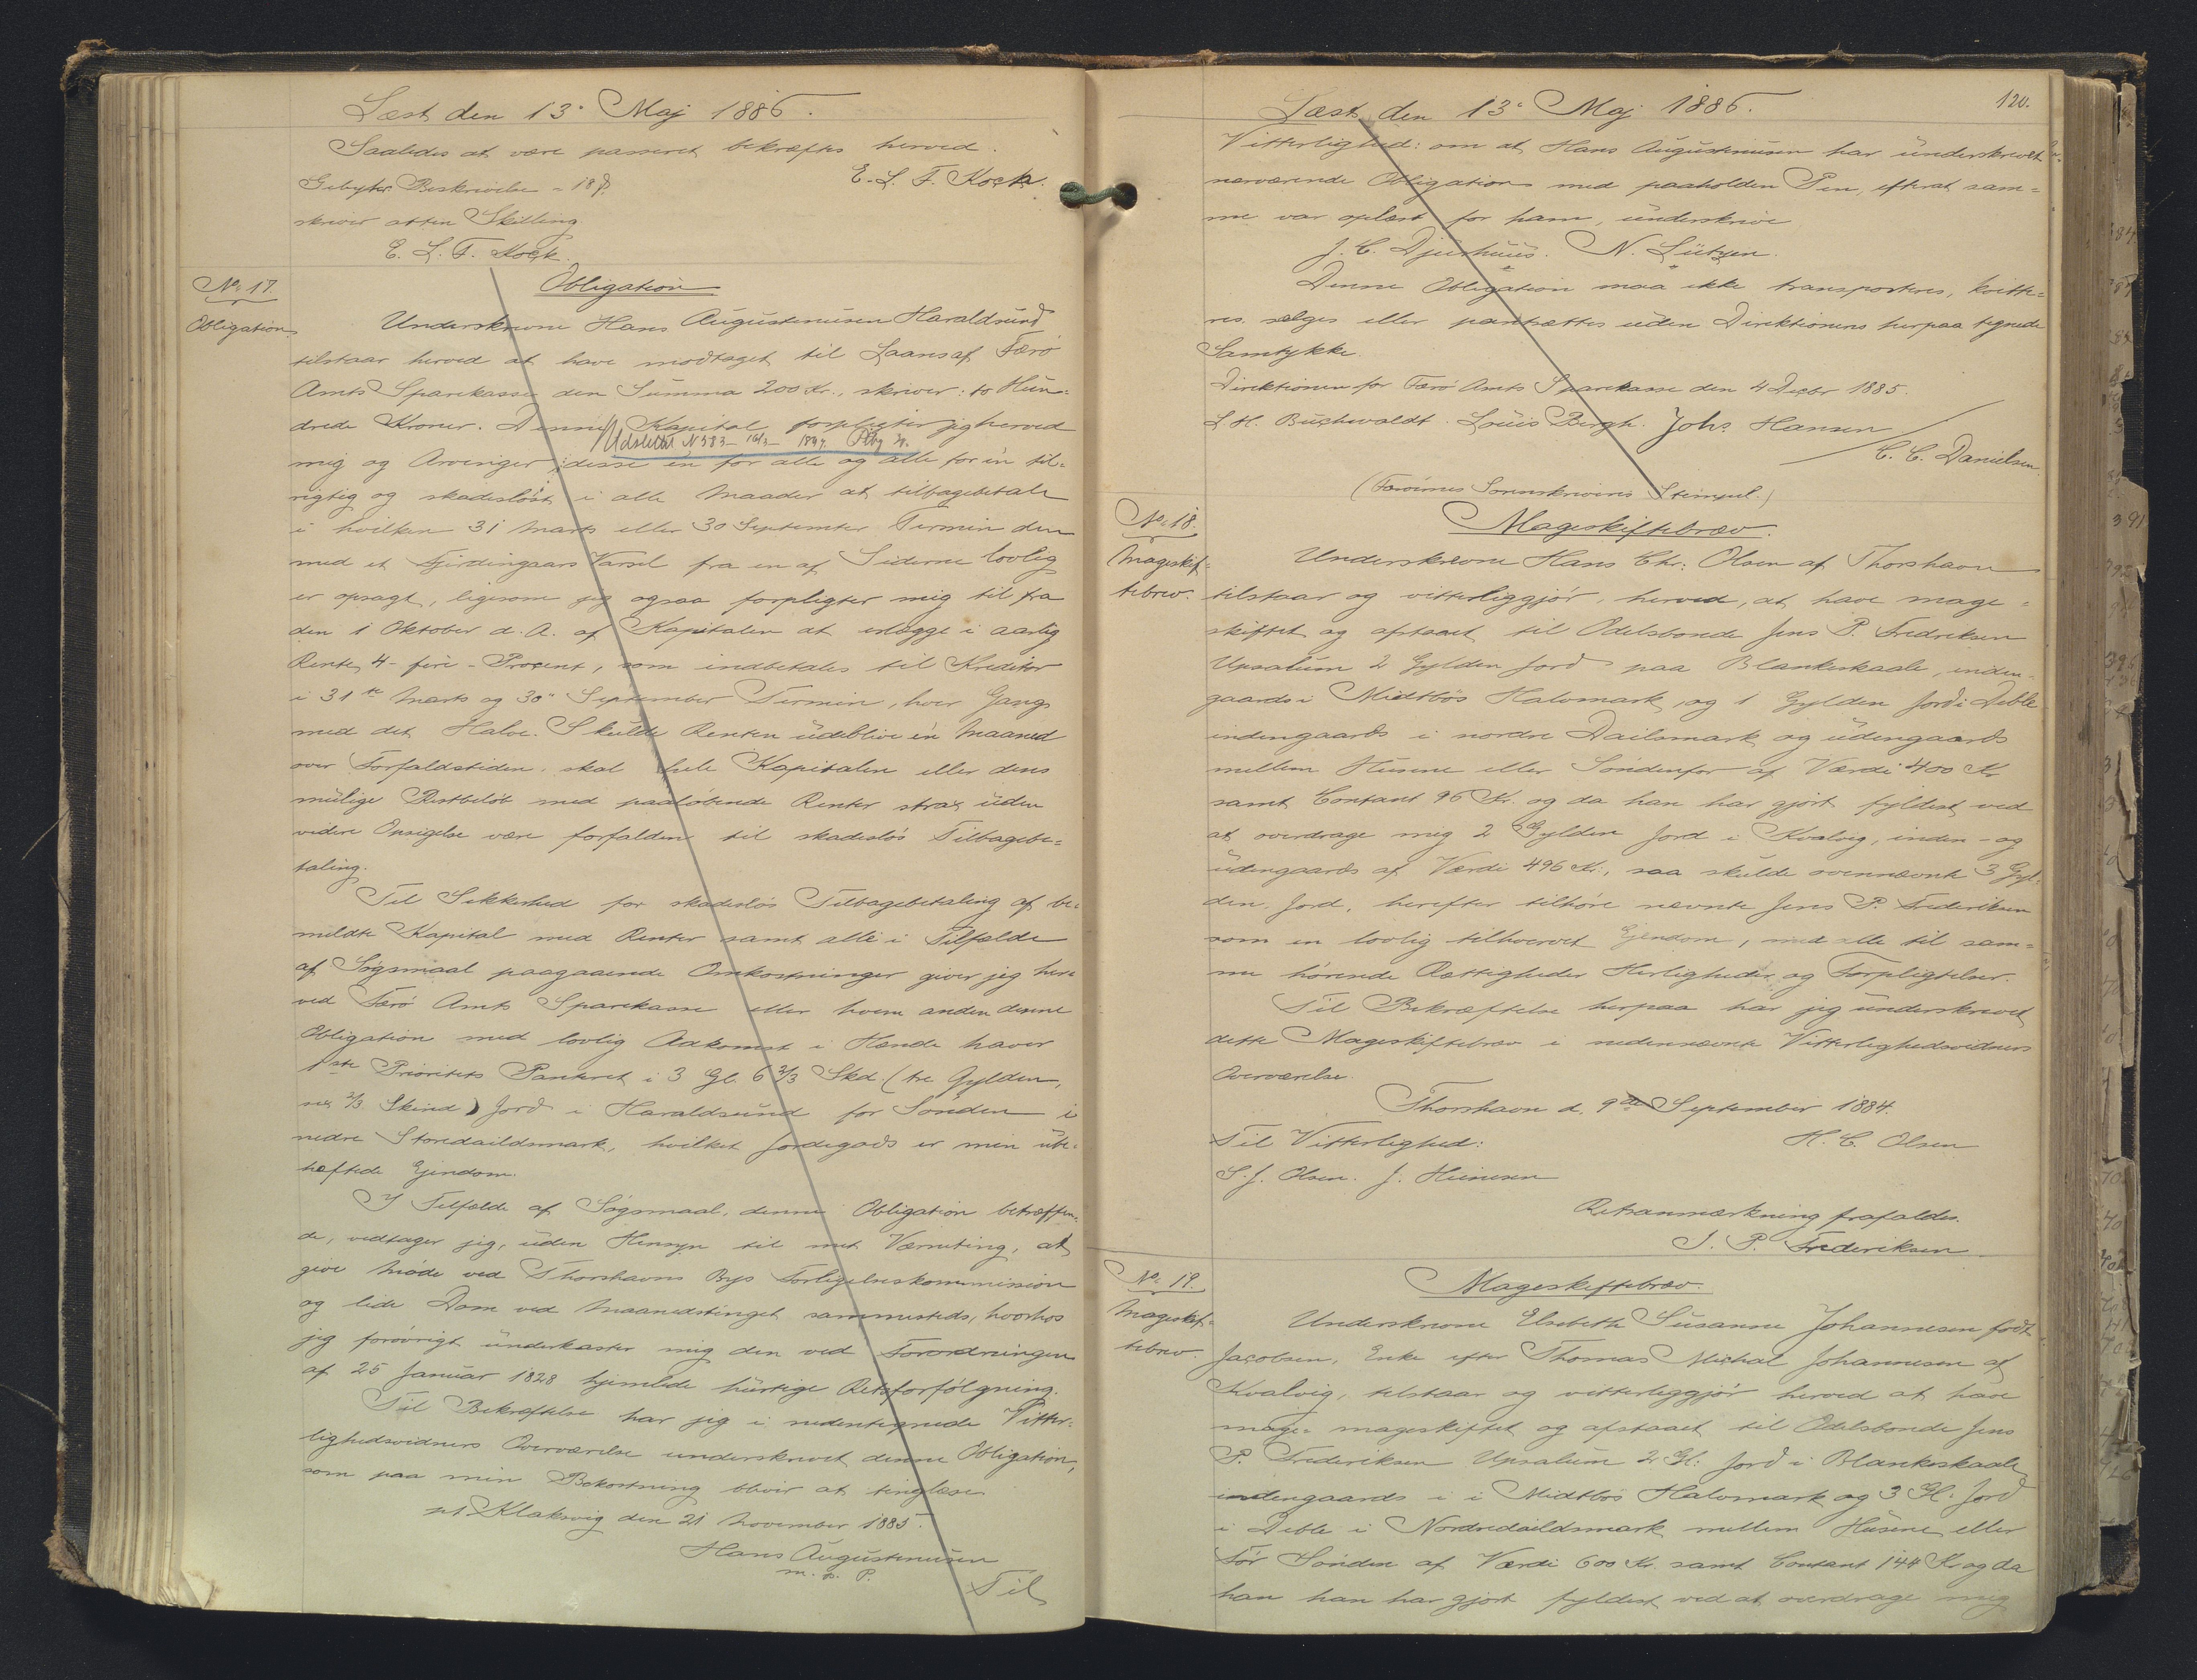 Læst den 13' Maj 1886.
Saaledes at være passeret bekræftes herved.
E. L. F. Kock.
Gebyhr Beskrivelse = 18 β.
skriver atten Skilling
E. L. F. Kock.
No. 17.
Obligation
Obligation
Underskrevne Hans Augustinusen Haraldsund
tilstaar herved at have modtaget til Laans af Færö
Amts Sparekasse den Summa 200 Kr., skriver: to Hun=
drede Kroner. Denne Kapital forpligter jeg herved
Udslettet N 383 - 16/3 - 1897.
mig og Arvinger, disse en for alle og alle for én til=
rigtig og skadeslöst i alle Maader at tilbagebetale
i hvilken 31 Marts eller 30 September Termin den
med et Fjerdingaars Varsel fra en af Siderne lovlig
er opsagt, ligesom jeg ogsaa forpligter mig til fra
den 1 Oktober d. A. af Kapitalen at erlægge i aarlig
Rente 4 - fire - Procent, som indbetales til Kreditor
i 31te Marts og 30' September Termin, hver Gang
med det Halve. Skulde Renten udeblive én Maaned
over Forfaldstiden, skal hele Kapitalen eller dens
mulige Restbelöb med paalöbende Renter strax uden
videre Opsigelse være forfalden til skadeslös Tilbagebe=
taling.
Til Sikkerhed for skadeslös Tilbagebetaling af be=
meldte Kapital med Renter samt alle i Tilfælde
af Sögsmaal paagaaende Omkostninger giver jeg her=
ved Færö Amts Sparekasse eller hvem anden denne
Obligation med lovlig Adkomst i Hænde haver
1ste Prioritets Panteret i 3 Gl. 6 2/3 Skd. (tre Gylden,
sex 2/3 Skind) Jord i Haraldsund for Sönden i
nedre Storedaildsmark, hvilket Jordegods er min ube=
hæftede Ejendom.
I Tilfælde af Sögsmaal, denne Obligation betræffen=
de, vedtager jeg, uden Hensyn til mit Værneting, at
give Möde ved Thorshavns Bys Forligelseskommission
og lide Dom ved Maanedstinget sammesteds, hvorhos
jeg forövrigt underkaster mig den ved Forordningen
af 25 Januar 1828 hjemlede hurtige Retsforfölgning.
Til Bekræftelse har jeg i nedentegnede Vitter=
lighedsvidners Overværelse underskrevet denne Obligation,
som paa min Bekostning bliver at tinglæse.
pt Klaksvig den 21 November 1885.
Hans Augustinusen
m. p. P.
Til
120.
Læst den 13' Maj 1886.
Vitterlighed: om at Hans Augustinusen har underskrevet
nærværende Obligation med paaholden Pen, efterat sam=
me var oplæst for ham, underskrive
J. C. Djurhuus. N. Lützen.
Denne Obligation maa ikke transporteres, kvitte=
res sælges eller pantsættes uden Direktionens herpaa tegnede
Samtykke.
Direktionen for Færö Amts Sparekasse den 4 Decbr 1885.
L. H. Buchwaldt. Louis Bergh. Johs Hansen
C. C. Danielsen
(Færöernes Sorenskriveris Stempel.)
No. 18.
Mageskif=
tebrev.
Mageskiftebrev.
Underskrevne Hans Chr: Olsen af Thorshavn
tilstaar og vitterliggjör, herved, at have mage=
skiftet og afstaaet til Odelsbonde Jens P. Fredriksen
Upsalum 2 Gylden Jord paa Blankeskaale, inden=
gaards i Midtbös Halvmark, og 1 Gylden Jord i Deble
indengaards i nordre Dailsmark og udengaards
mellem Husene eller Söndenfor af Værdi 400 Kr
samt Contant 96 Kr. og da han har gjört fyldest ved
at overdrage mig 2 Gylden Jord i Kvalvig, inden- og
udengaards af Værdi 496 Kr., saa skulde ovennævnte 3 Gyl=
den Jord, herefter tilhöre nævnte Jens P. Frederiksen
som en lovlig tilhvervet Ejendom, med alle til sam=
me hörende Rettigheder Herligheder og Forpligtelser.
Til Bekræftelse herpaa har jeg underskrevet
dette Mageskiftebrev i nedennævnte Vitterlighedsvidners
Overværelse.
Thorshavn d. 9de September 1884.
Til Vitterlighed:
H. C. Olsen
S. J. Olsen. J. Heinesen
Retranmærkning frafaldes.
J. P. Frederiksen
No. 19.
Mageskif=
tebrev.
Mageskiftebrev.
Underskrevne Elsebeth Susanne Johannesen född
Jacobsen, Enke efter Thomas Michal Johannesen af
Kvalvig, tilstaar og vitterliggjör herved at have
mage= mageskiftet og afstaaet til Odelsbonde Jens
P. Frederiksen Upsalum 2 Gl: Jord i Blankeskaale
indengaards i i Midtbös Halvmark og 3 Gl. Jord
i Deble i Nordredaildsmark mellem Husene eller
För Sönden af Værdi 600 Kr. samt Contant 144 Kr og da
han han har gjort fyldest ved at overdrage mig